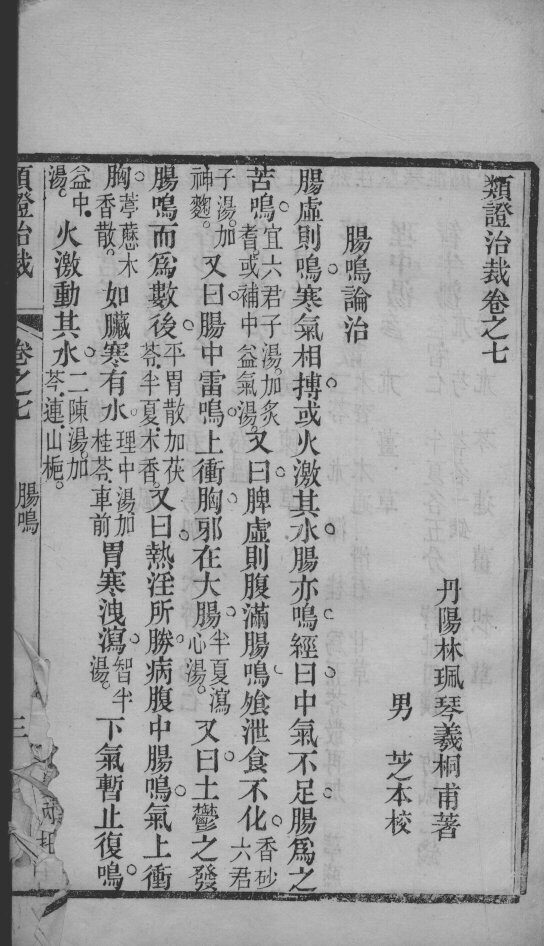 類證治裁卷之七
丹陽林珮琴羲桐甫著
男　芝本校
腸鳴論治
腸虛則鳴寒氣相摶或火激其水腸亦鳴經曰中氣不足腸爲之
苦鳴宜六君子湯。加炙耆。或補中益氣湯。又曰脾虛則腹滿腸鳴飧泄食不化香砂六君
子湯。加神麴。又曰腸中雷鳴上衝胸邪在大腸半夏瀉心湯。又曰土鬱之發
腸鳴而爲數後平胃散加茯苓.半夏.木香。又曰熱淫所勝病腹中腸鳴氣上衝
胸葶藶木香散。如臟寒有水理中湯加桂苓.車前胃寒洩瀉智半湯。下氣暫止復鳴
益中.湯。火激動其水二陳湯。加芩.連.山梔。
類證治裁
卷之七
腸鳴